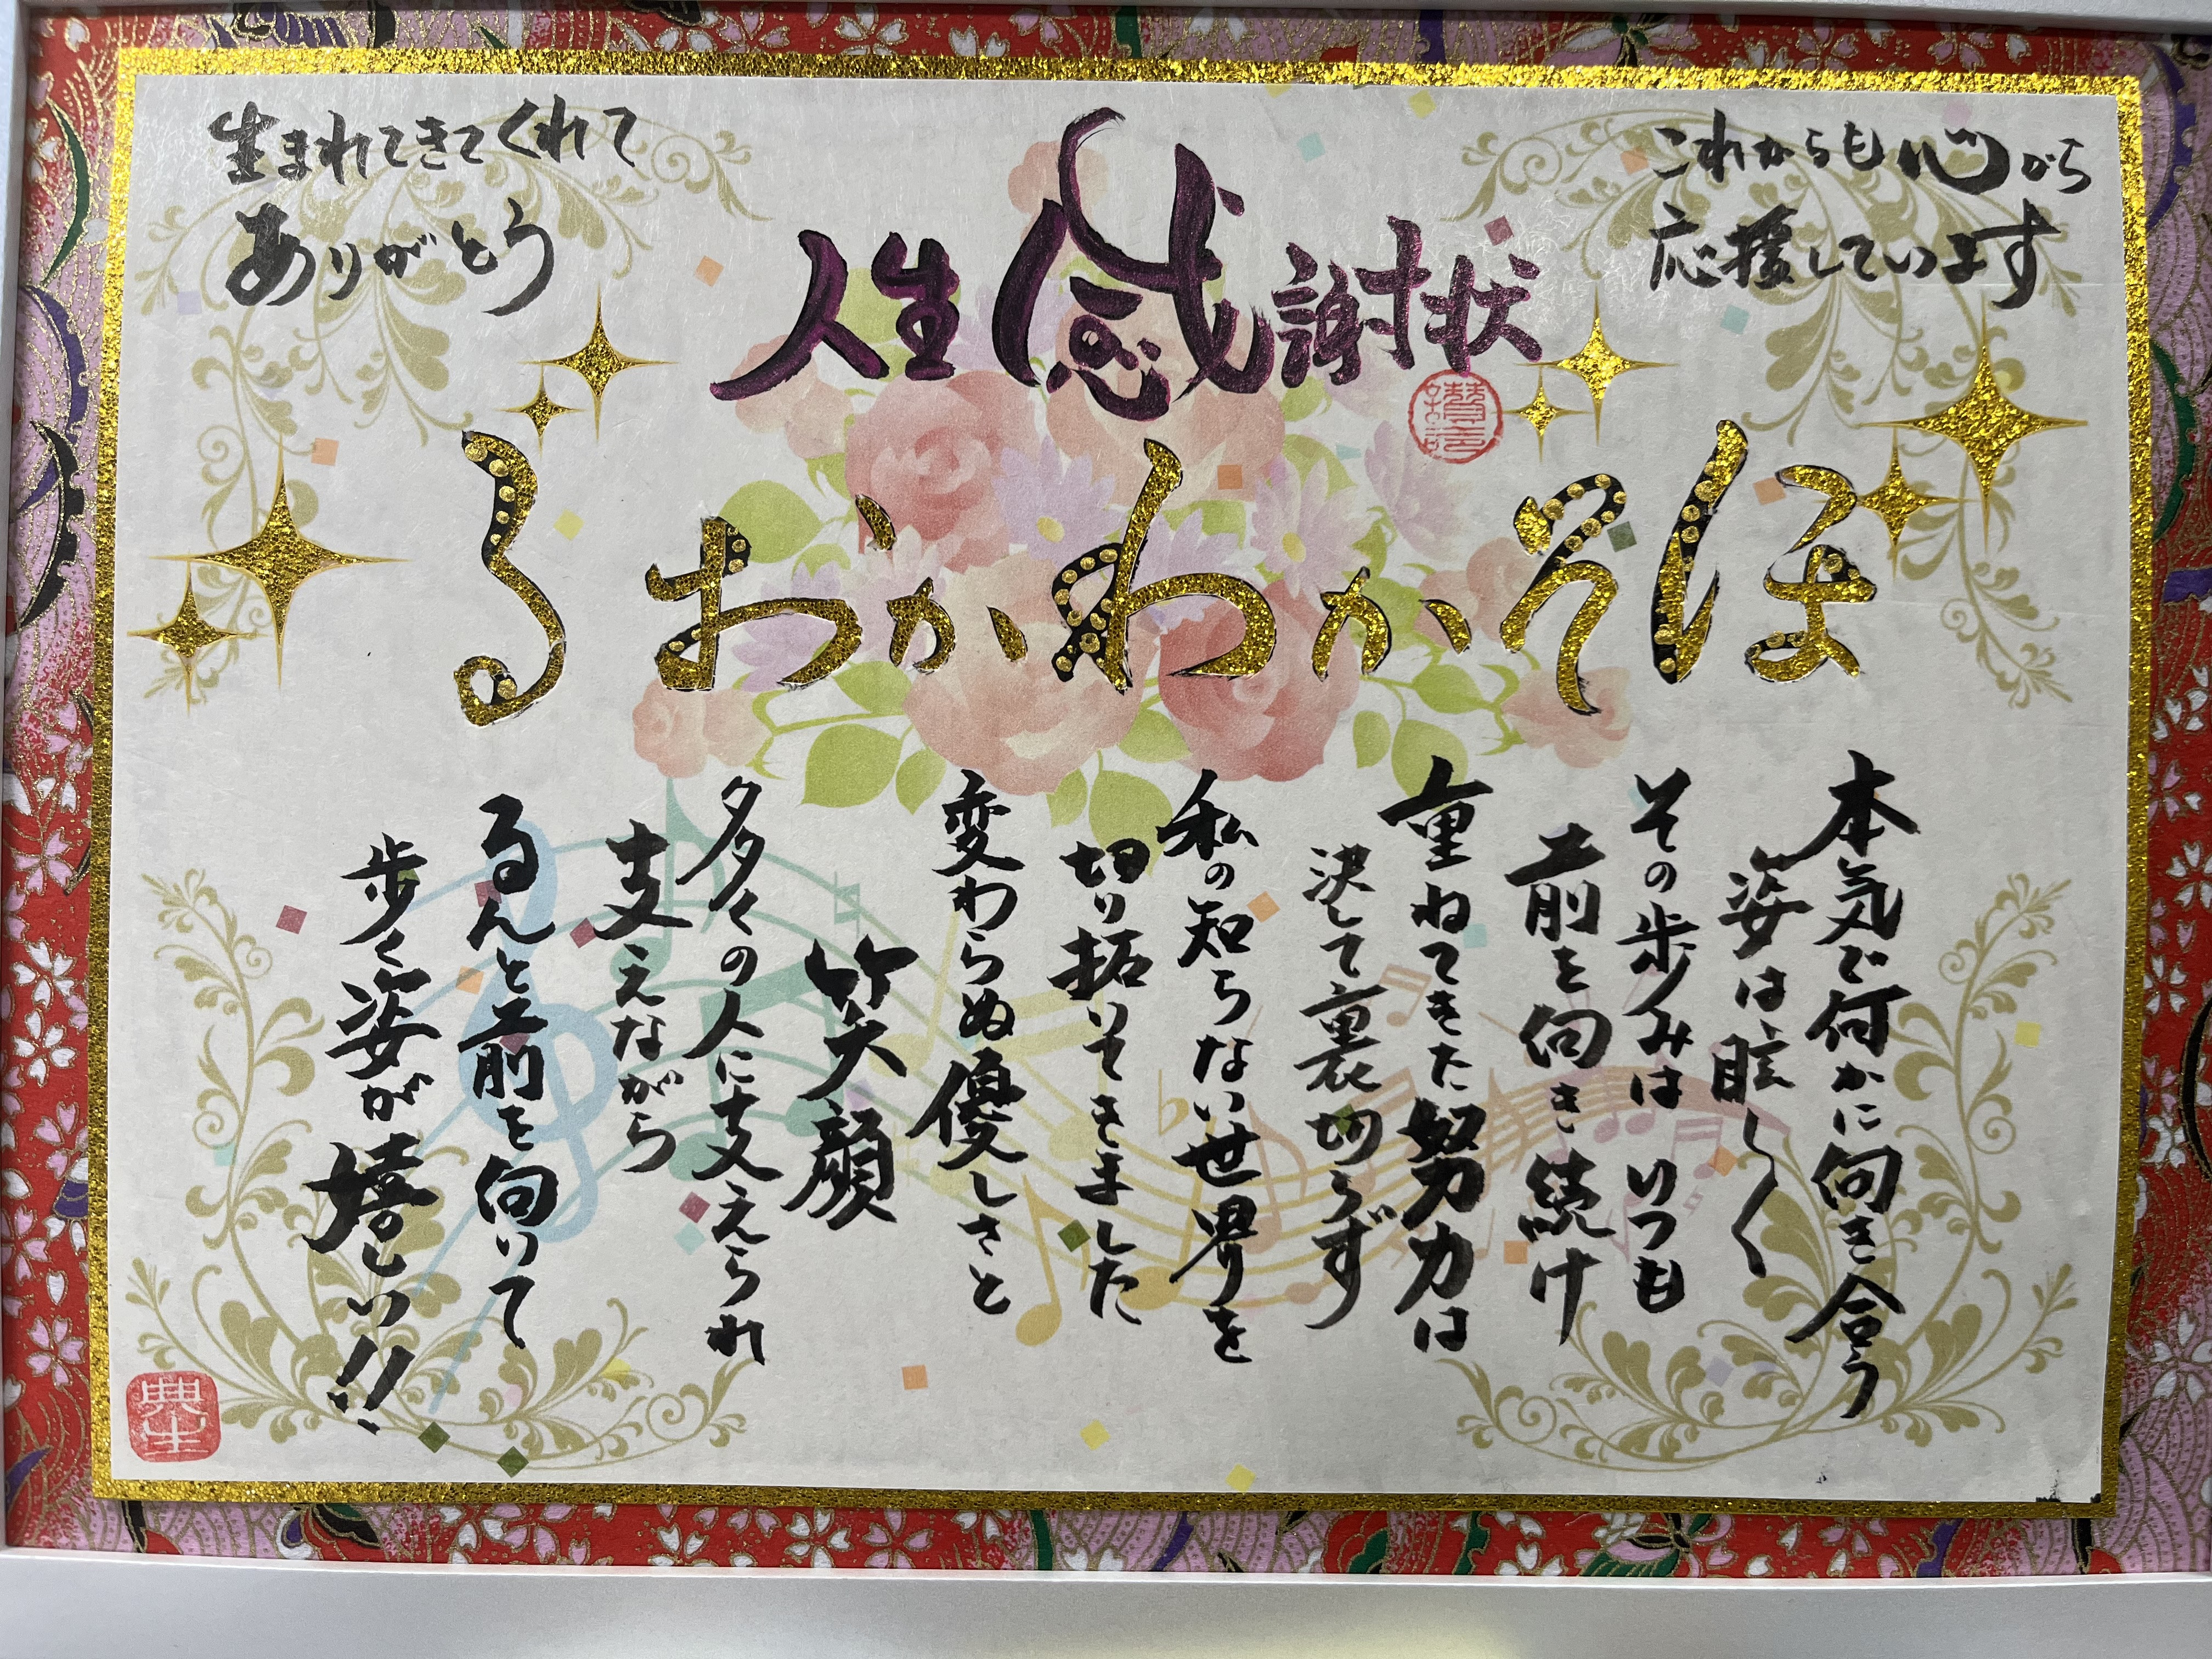 生まれてきてくれて
ありがとう
人生感謝状
これからも心から
応援しています
ほそかわかおる
本気で何かに向き合う
姿は眩しく
その歩みはいつも
前を向き続け
重ねてきた努力は
決して裏切らず
私の知らない世界を
切り拓いてきました
変わらぬ優しさと
笑顔
多くの人に支えられ
支えながら
るんと前を向いて
歩く姿が嬉しい!!
典生